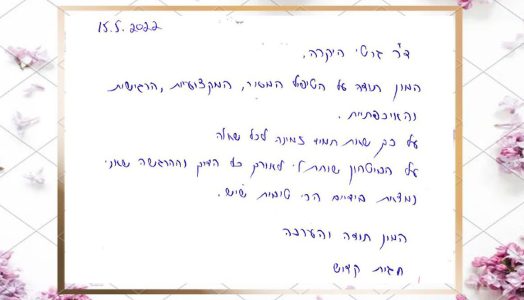 15.5.2022
ד"ר גרטי היקרה,
המון תודה על הטיפול המסור, המקצועיות, הרגישות
והאיכפתיות.
על כך שאת תמיד זמינה לכל שאלה
על הביטחון שנתת לי לאורך כל הדרך וההרגשה שאני
נמצאת בידיים הכי טובות שיש.
המון תודה והערכה
חגית קדוש